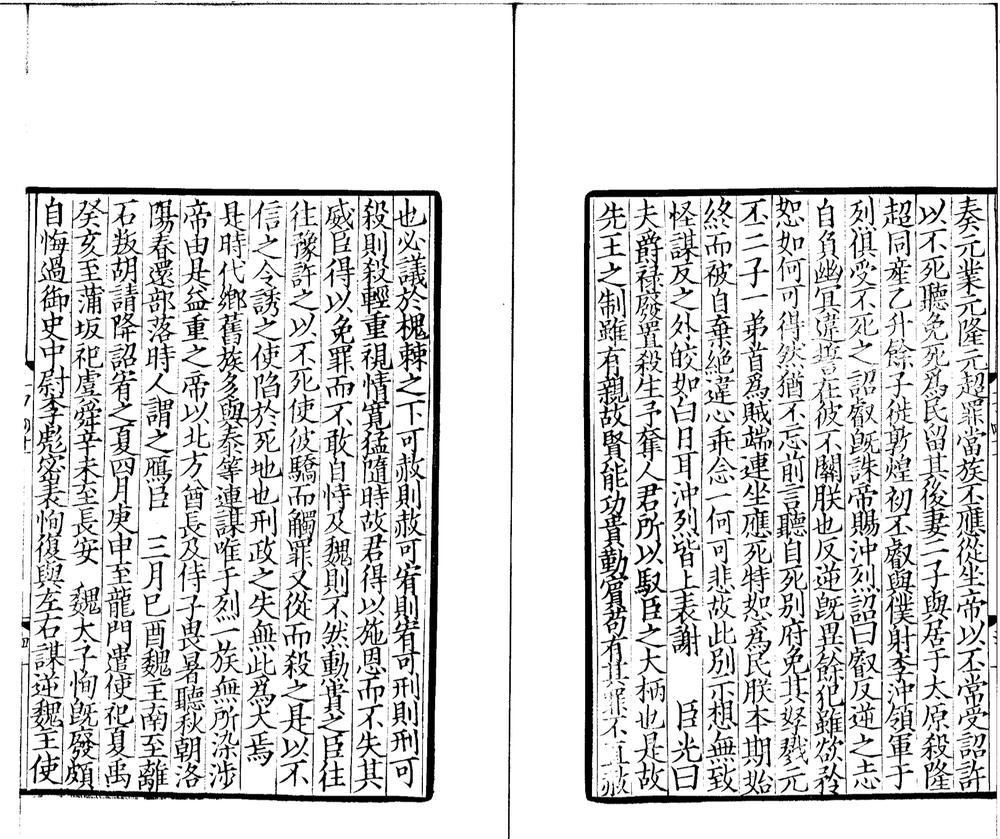 奏元業元隆元超罪當族丕應從坐帝以丕常受詔許
以不死聽免死爲民留其後妻二子與居于太原殺隆
超同産乙升餘子徙敦煌初丕叡與僕射李沖領軍于
烈俱受不死之詔叡旣誅帝賜沖烈詔曰叡反逆之志
自負幽冥違誓在彼不關朕也反逆旣異餘犯雖欲矜
恕如何可得然猶不忘前言聽自死別府免其孥戮元
丕二子一弟首爲賊端連坐應死特恕爲民朕本期始
終而彼自棄絕違心乖念一何可悲故此別示想無致
怪謀反之外皎如白日耳沖烈皆上表謝　臣光曰
夫爵祿廢置殺生予奪人君所以馭臣之大柄也是故
先王之制雖有親故賢能功貴勤賓苟有其罪不直赦
也必議於槐棘之下可赦則赦可宥則宥可刑則刑可
殺則殺輕重視情寬猛隨時故君得以施恩而不失其
威臣得以免罪而不敢自恃及魏則不然勳貴之臣往
往豫許之以不死使彼驕而觸罪又從而殺之是以不
信之令誘之使陷於死地也刑政之失無此爲大焉
是時代鄉舊族多與泰等連謀唯于烈一族無所染涉
帝由是益重之帝以北方酋長及侍子畏暑聽秋朝洛
陽春還部落時人謂之鴈臣　三月己酉魏主南至離
石叛胡請降詔宥之夏四月庚申至龍門遣使祀夏禹
癸亥至蒲坂祀虞舜辛未至長安　魏太子恂旣廢頗
自悔過御史中尉李彪密表恂復與左右謀逆魏主使